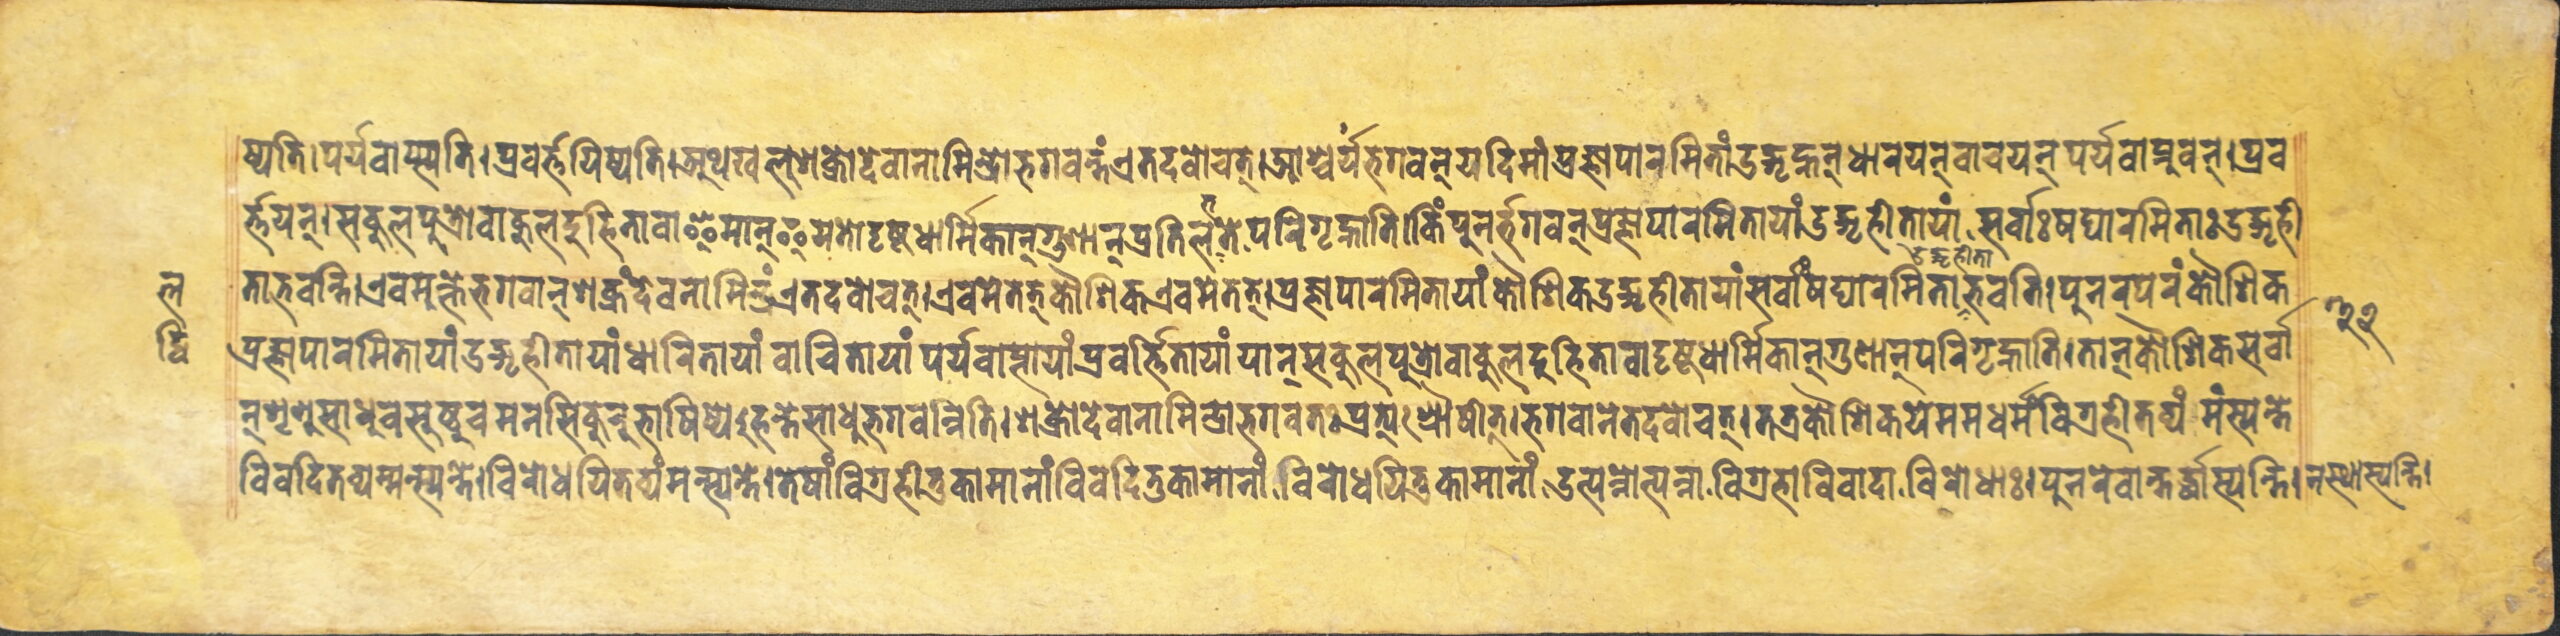 ष्यति।पर्यवाप्स्यति।प्रवर्त्तयिष्यति।अथखलुशक्रोदेवानामिन्द्रोभगवन्तंएतदवोचत्।आश्चर्यंभगवन्यदिमांप्रज्ञापारमितांउद्गृह्नन्धारयन्वाचयन्पर्यवाप्नुवन्।प्रव
र्त्तयन्।सकुलपुत्रोवाकुलदुहितावा मान् मेतोदृष्टधार्मिकान्गुणान्प्रतिलभते परिगृह्नाति।किंपुनर्भगवन्प्रज्ञापारमितायांउद्गृहीतायां सर्वाःषट्पारमिताःउद्गृही
ताभवन्ति।एवमुक्तेभगवान्शक्रंदेवनामिन्द्रंएतदवोचत्।एवमेतत्कौशिकएवमेतत्।प्रज्ञापारमितायांकौशिकउद्गृहीतायांसर्वांषट्पारमिताउद्गृहीताभवति।पुनरपरंकौशिक
प्रज्ञापारमितायांउद्गृहीतायांधारितायां वाचितायां पर्यवाप्तायांप्रवर्त्तितायां यान्सकुलपुत्रोवाकुलदुहितावादृष्टधार्मिकान्गुणान्परिगृह्नाति।तान्कौशिकसर्वा
न्शृणुसाधुचसुष्ठुचमनसिकुरुभाषिष्ये हन्तेसाधुभगवन्निति।शक्रोदेवानामिन्द्रोभगवतःप्रत्यश्रौषीत्।भगवानेतदवोचत्।तत्रकौशिकयेममधर्मंविग्रहीतव्यं मंस्यन्ते
विवदितव्यम्मन्स्यन्ते।विरोधयितव्यंमन्स्यन्ते।तेषांविग्रहीतुकामानांविवदितुकामानां विरोधयितुकामानां उत्पन्नोत्पन्ना विग्रहाविवादा विरोधाः।पुनरेवान्तर्द्धास्यन्ति।नस्थास्यन्ति।